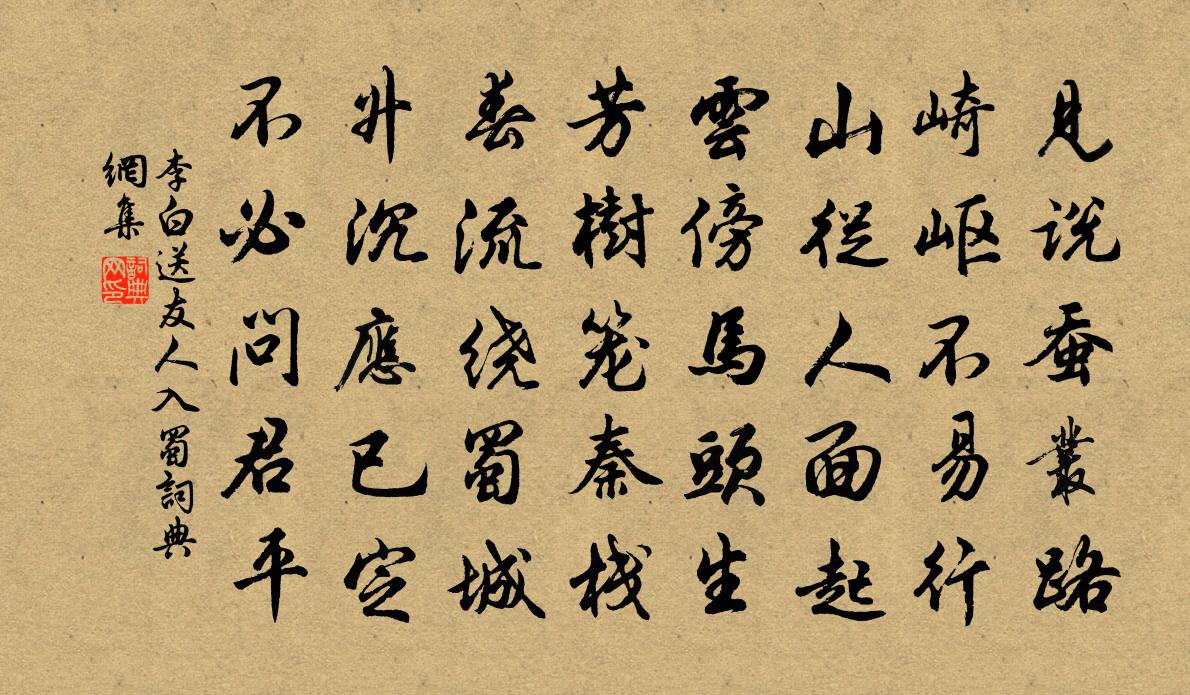 見说蚕叢路
崎岖不易行
山從人面起
雲傍馬頭生
芳樹笼秦栈
春流绕蜀城
升沉應已定
不必問君平
李白送友人入蜀詞典
網集
詞典
网印